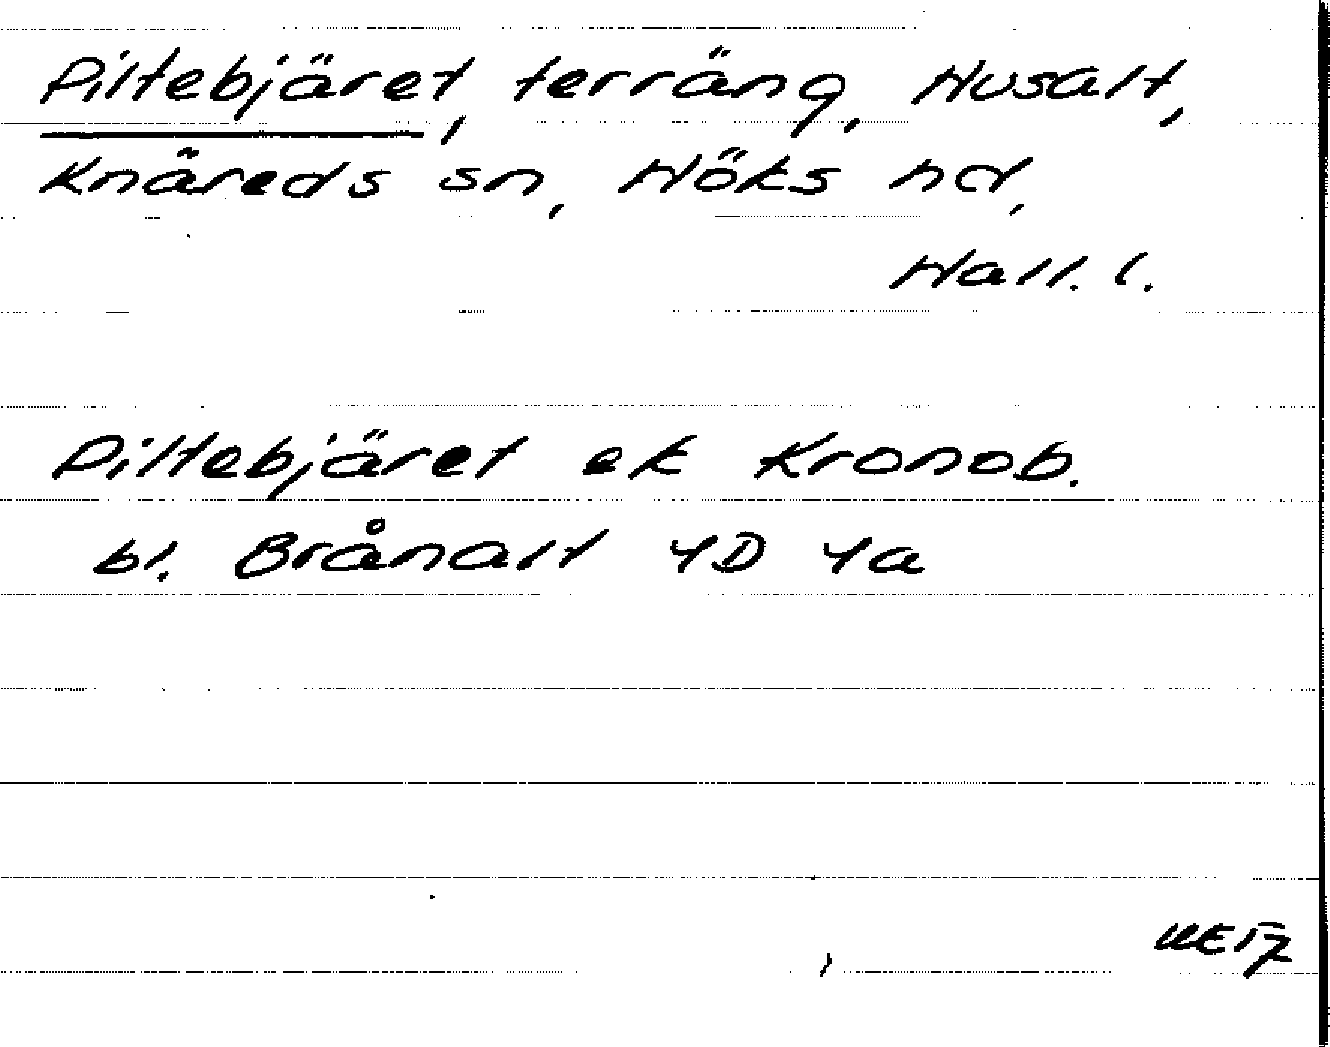 Piltebjäret, terräng, Husalt,
Knäreds sn, Höks hd,
Hall. l.
Piltebjäret ek Kronob.
bl. Brånalt 4D 4a